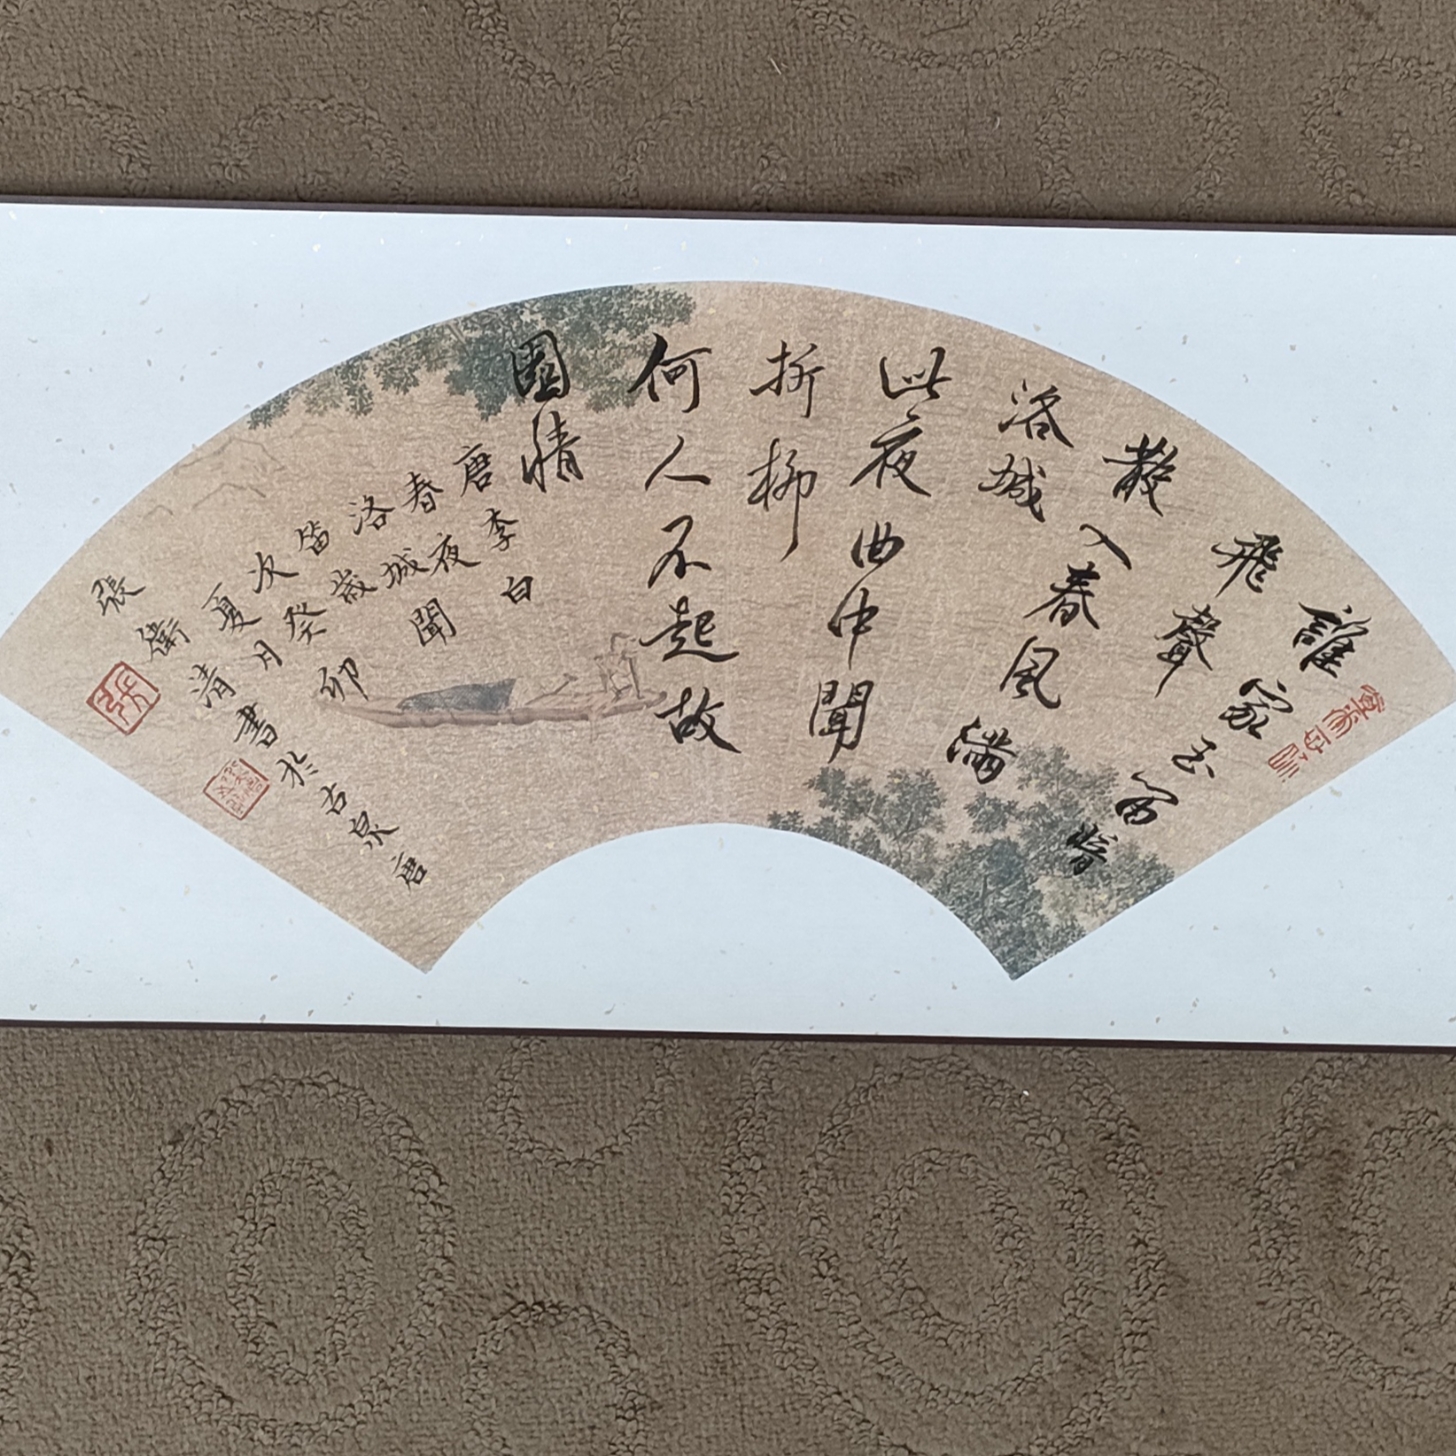 誰家玉笛暗
飛聲
散入春風滿
洛城
此夜曲中聞
折柳
何人不起故
園情
唐李白
春夜
洛城聞
笛歲
次癸卯
夏月
張衛清書於古泉唐
張